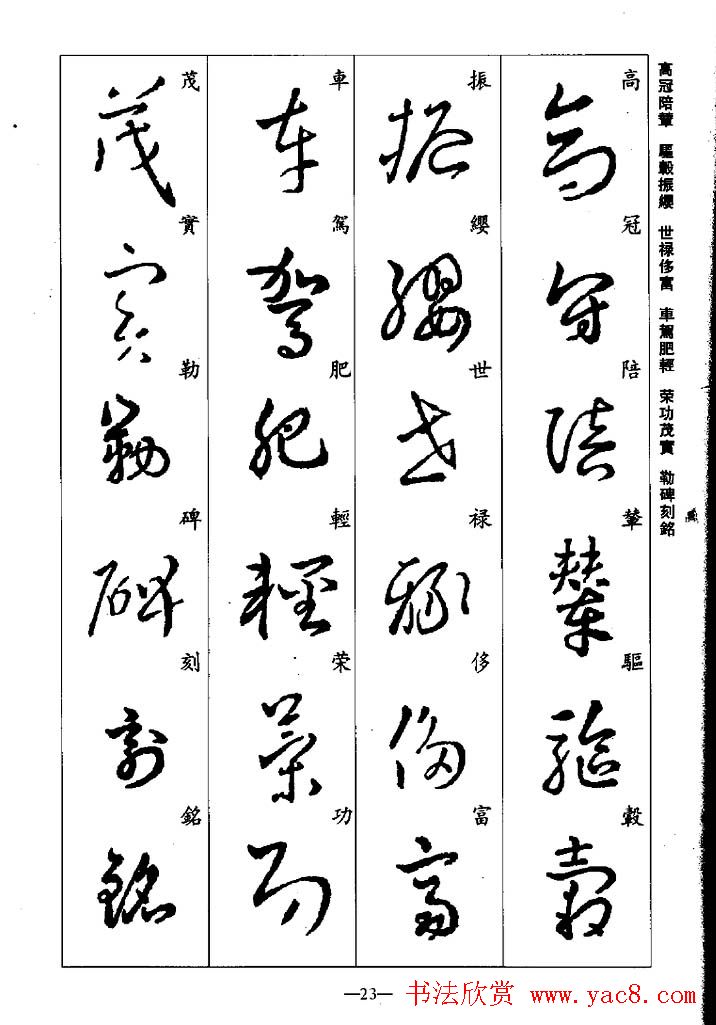 高冠陪輦 驅轂振纓 世禄侈富 車駕肥輕 荣功茂實 勒碑刻銘
高冠陪輦驅轂
振纓世禄侈富
車駕肥輕荣功
茂實勒碑刻銘
—23—
书法欣赏 www.yac8.com